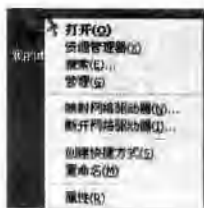 打开(O)
资源管理器(X)
搜索(E)...
管理(G)
映射网络驱动器(N)...
断开网络驱动器(I)...
创建快捷方式(S)
重命名(M)
属性(R)